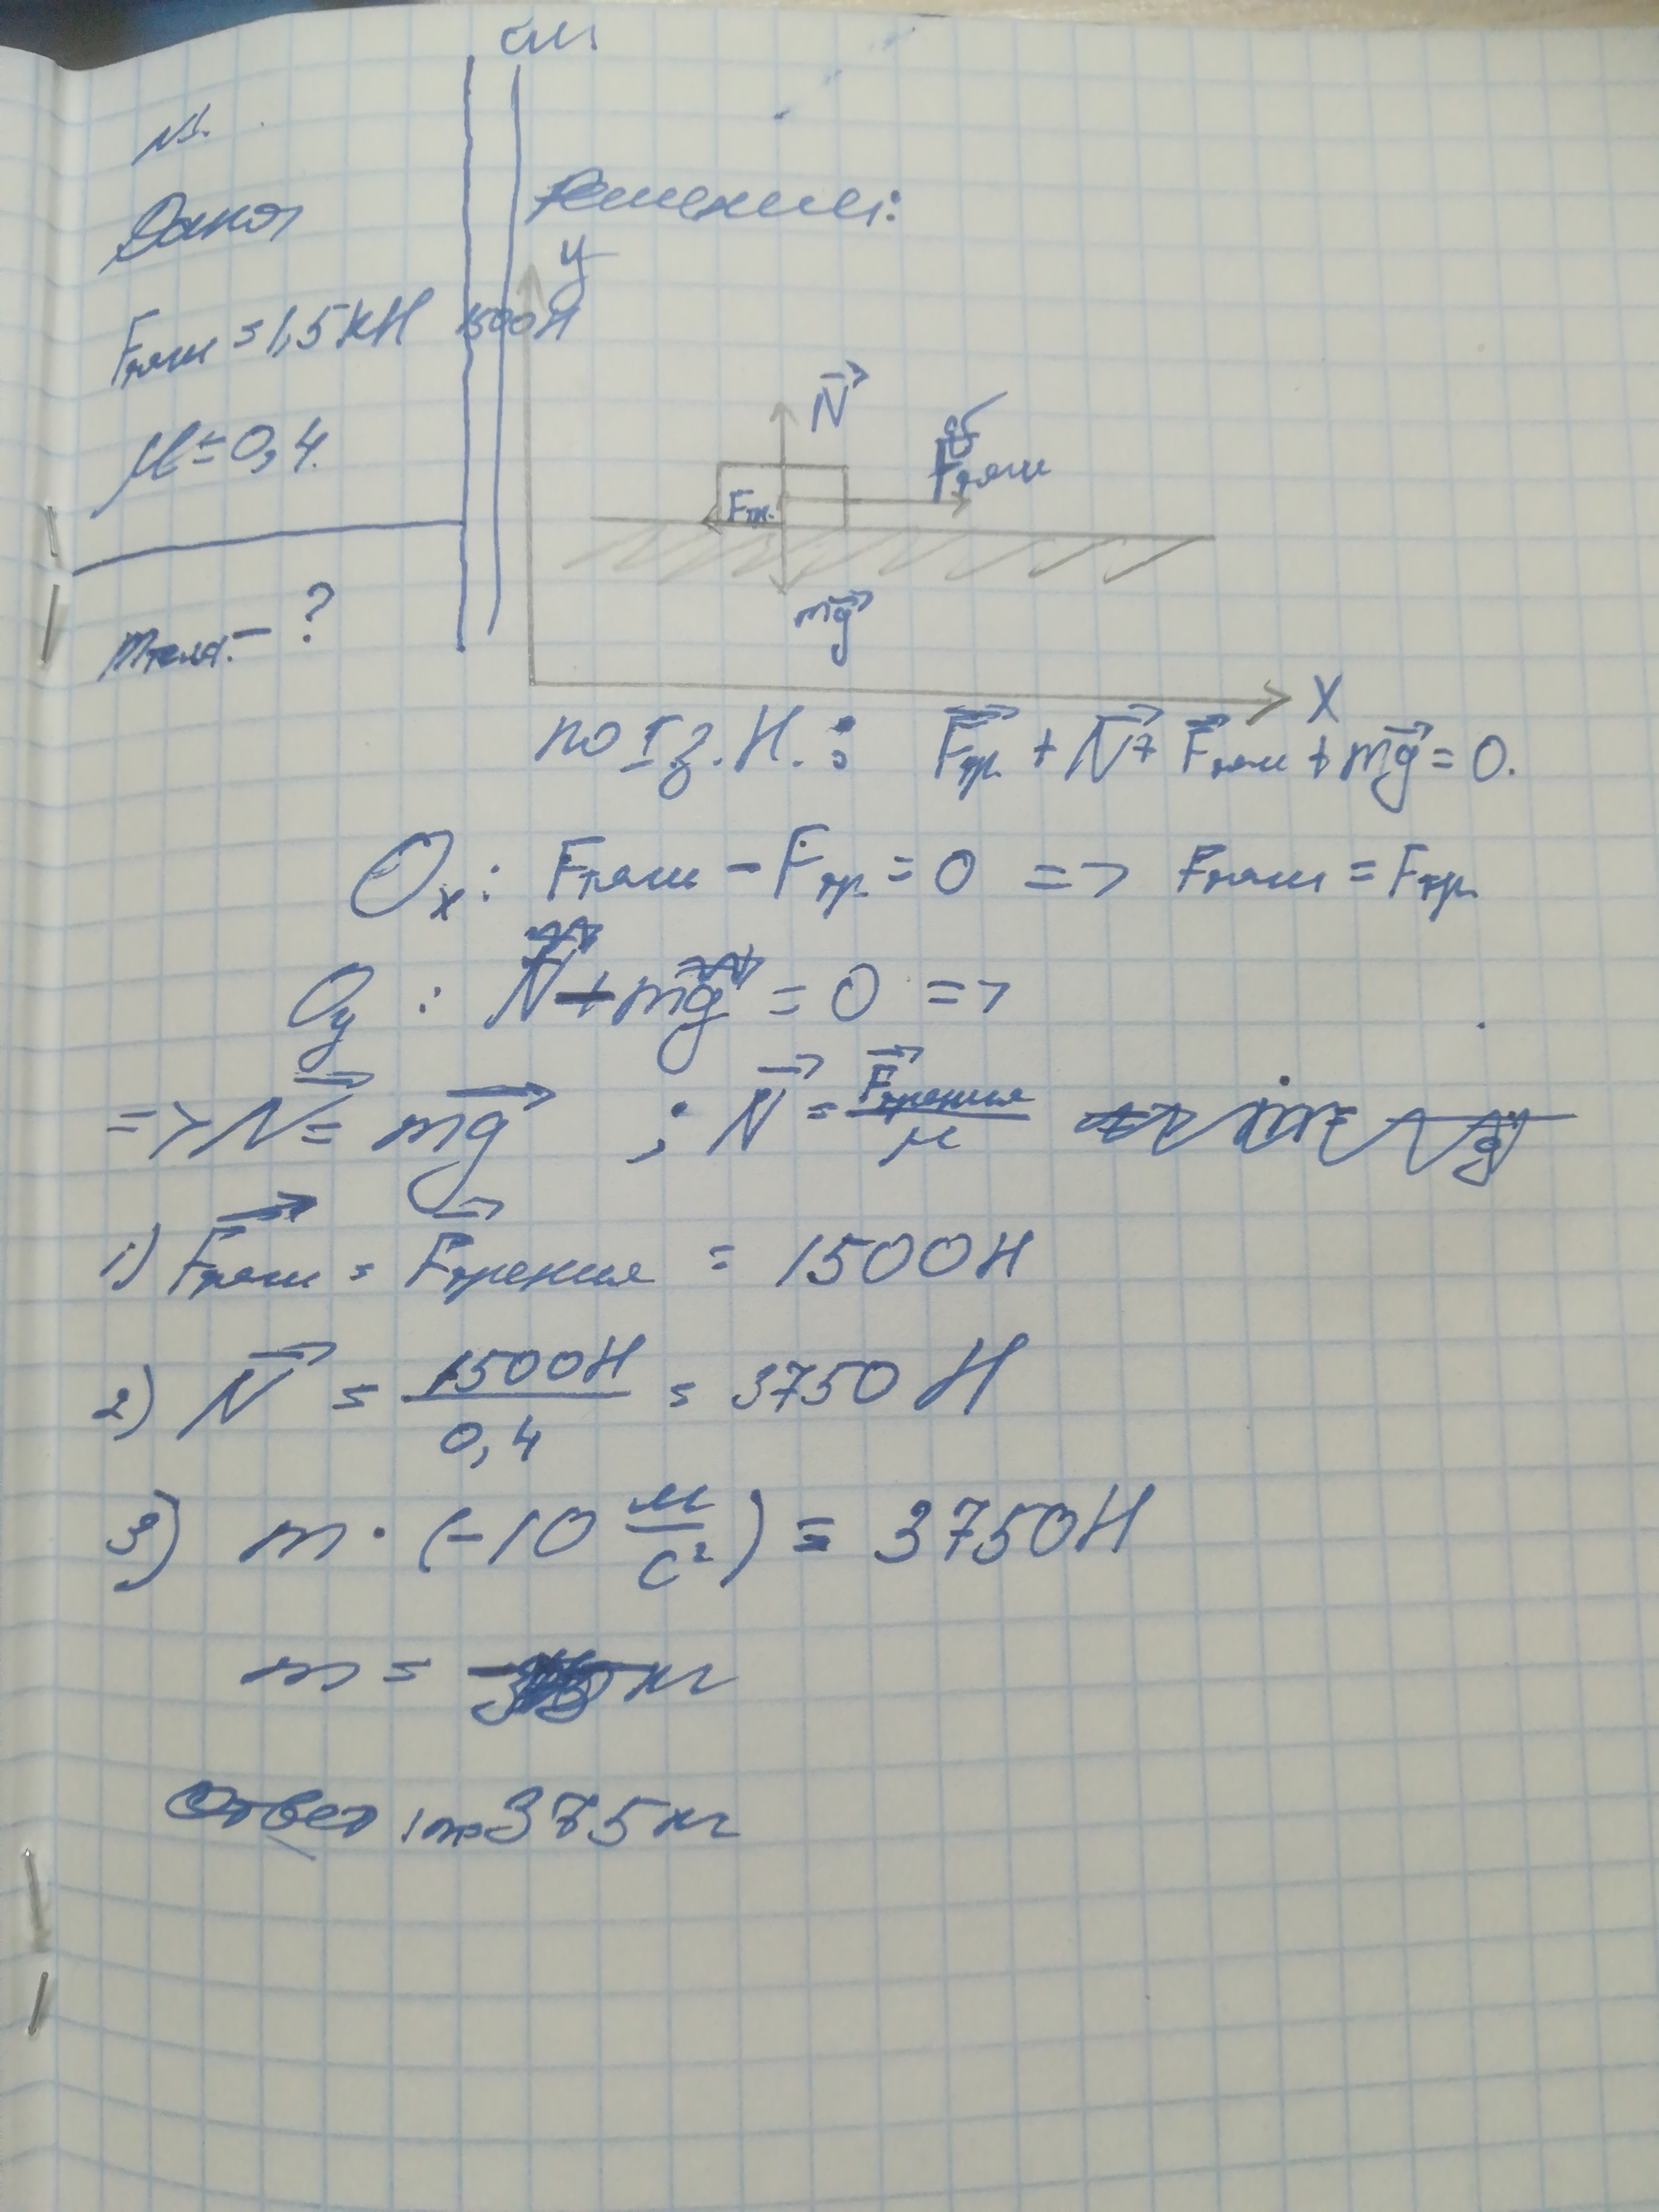 СИ
№1.
Дано:
Решение:
y
Fтяги = 1,5 кН 1500Н
μ = 0,4.
N
Fтяги
Fтр.
mg
mтела. - ?
X
по I з. Н. : Fтр. + N + Fтяги + mg = 0.
Ox: Fтяги - Fтр. = 0 => Fтяги = Fтр.
Oy : N - mg = 0 =>
=> N = mg ; N = Fтрения / μ
1) Fтяги = Fтрения = 1500Н
2) N = 1500Н / 0,4 = 3750 Н
3) m · (-10 м/с²) = 3750Н
m = кг
Ответ: m=375кг